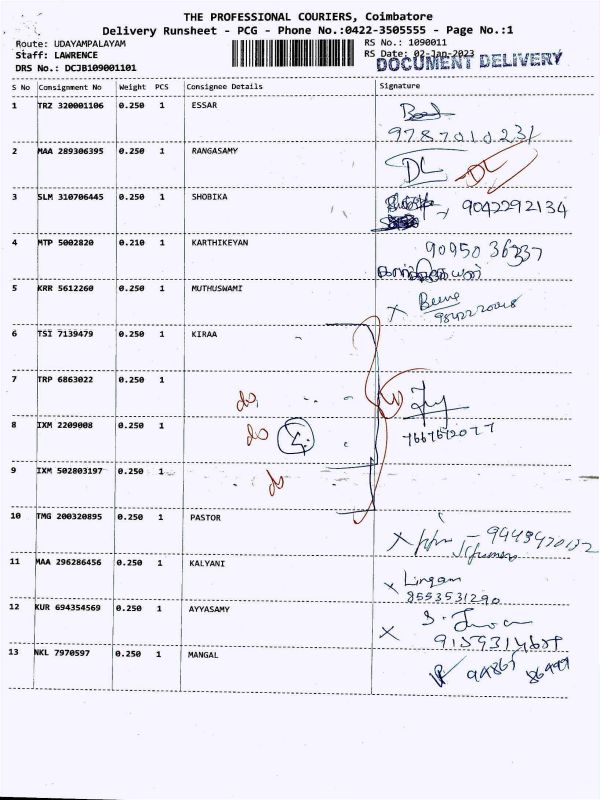 THE PROFESSIONAL COURIERS, Coimbatore
Delivery Runsheet - PCG - Phone No.:0422-3505555 - Page No.:1
Route: UDAYAMPALAYAM RS No.: 1090011
Staff: LAWRENCE RS Date: 02-Jan-2023
DOCUMENT DELIVERY
DRS No.: DCJB109001101
S No Consignment No Weight PCS Consignee Details Signature
1 TRZ 320001106 0.250 1 ESSAR
9787010231
2 MAA 289306395 0.250 1 RANGASAMY
DL DL
3 SLM 310706445 0.250 1 SHOBIKA
9042292134
4 MTP 5002820 0.210 1 KARTHIKEYAN
5 KRR 5612260 0.250 1 MUTHUSWAMI
6 TSI 7139479 0.250 1 KIRAA
7 TRP 6863022 0.250 1
do
8 IXM 2209008 0.250 1
do
9 IXM 502803197 0.250 1
do
10 TMG 200320895 0.250 1 PASTOR
11 MAA 296286456 0.250 1 KALYANI
Lingam
8553531290
12 KUR 694354569 0.250 1 AYYASAMY
13 NKL 7970597 0.250 1 MANGAL